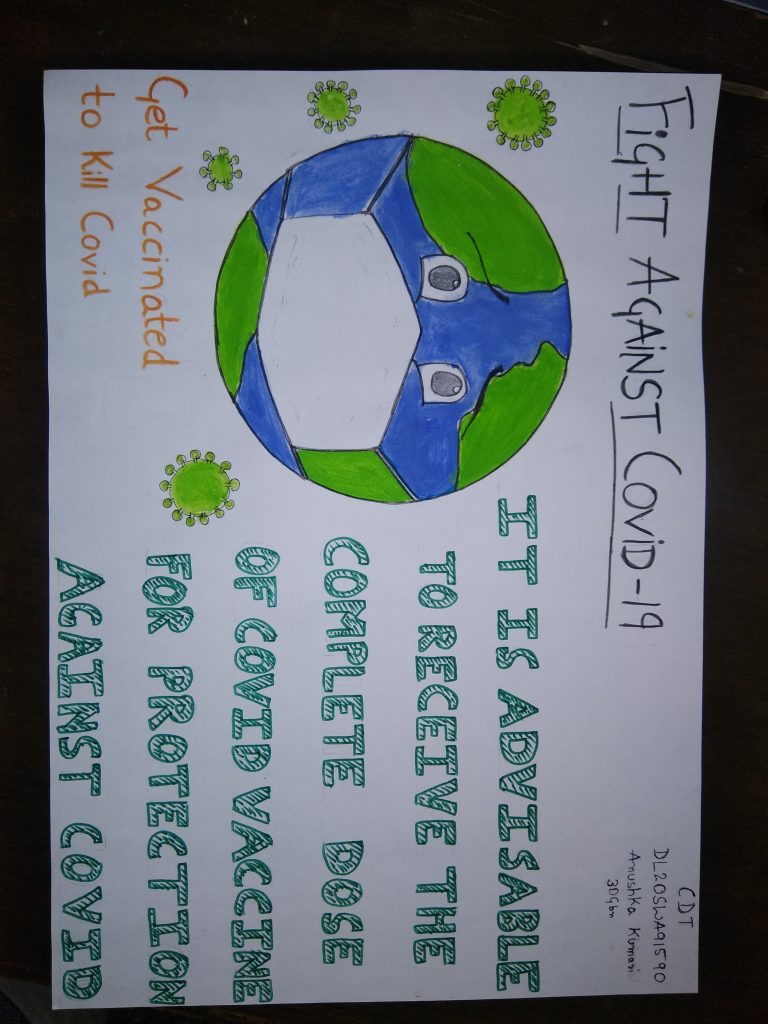 FiGHT AGAiNST COViD-19
CDT
DL20SWA91590
Anushka Kumari
3DGbn
IT IS ADVISABLE
TO RECEIVE THE
COMPLETE DOSE
OF COVID VACCINE
FOR PROTECTION
AGAINST COVID
Get Vaccinated
to Kill Covid